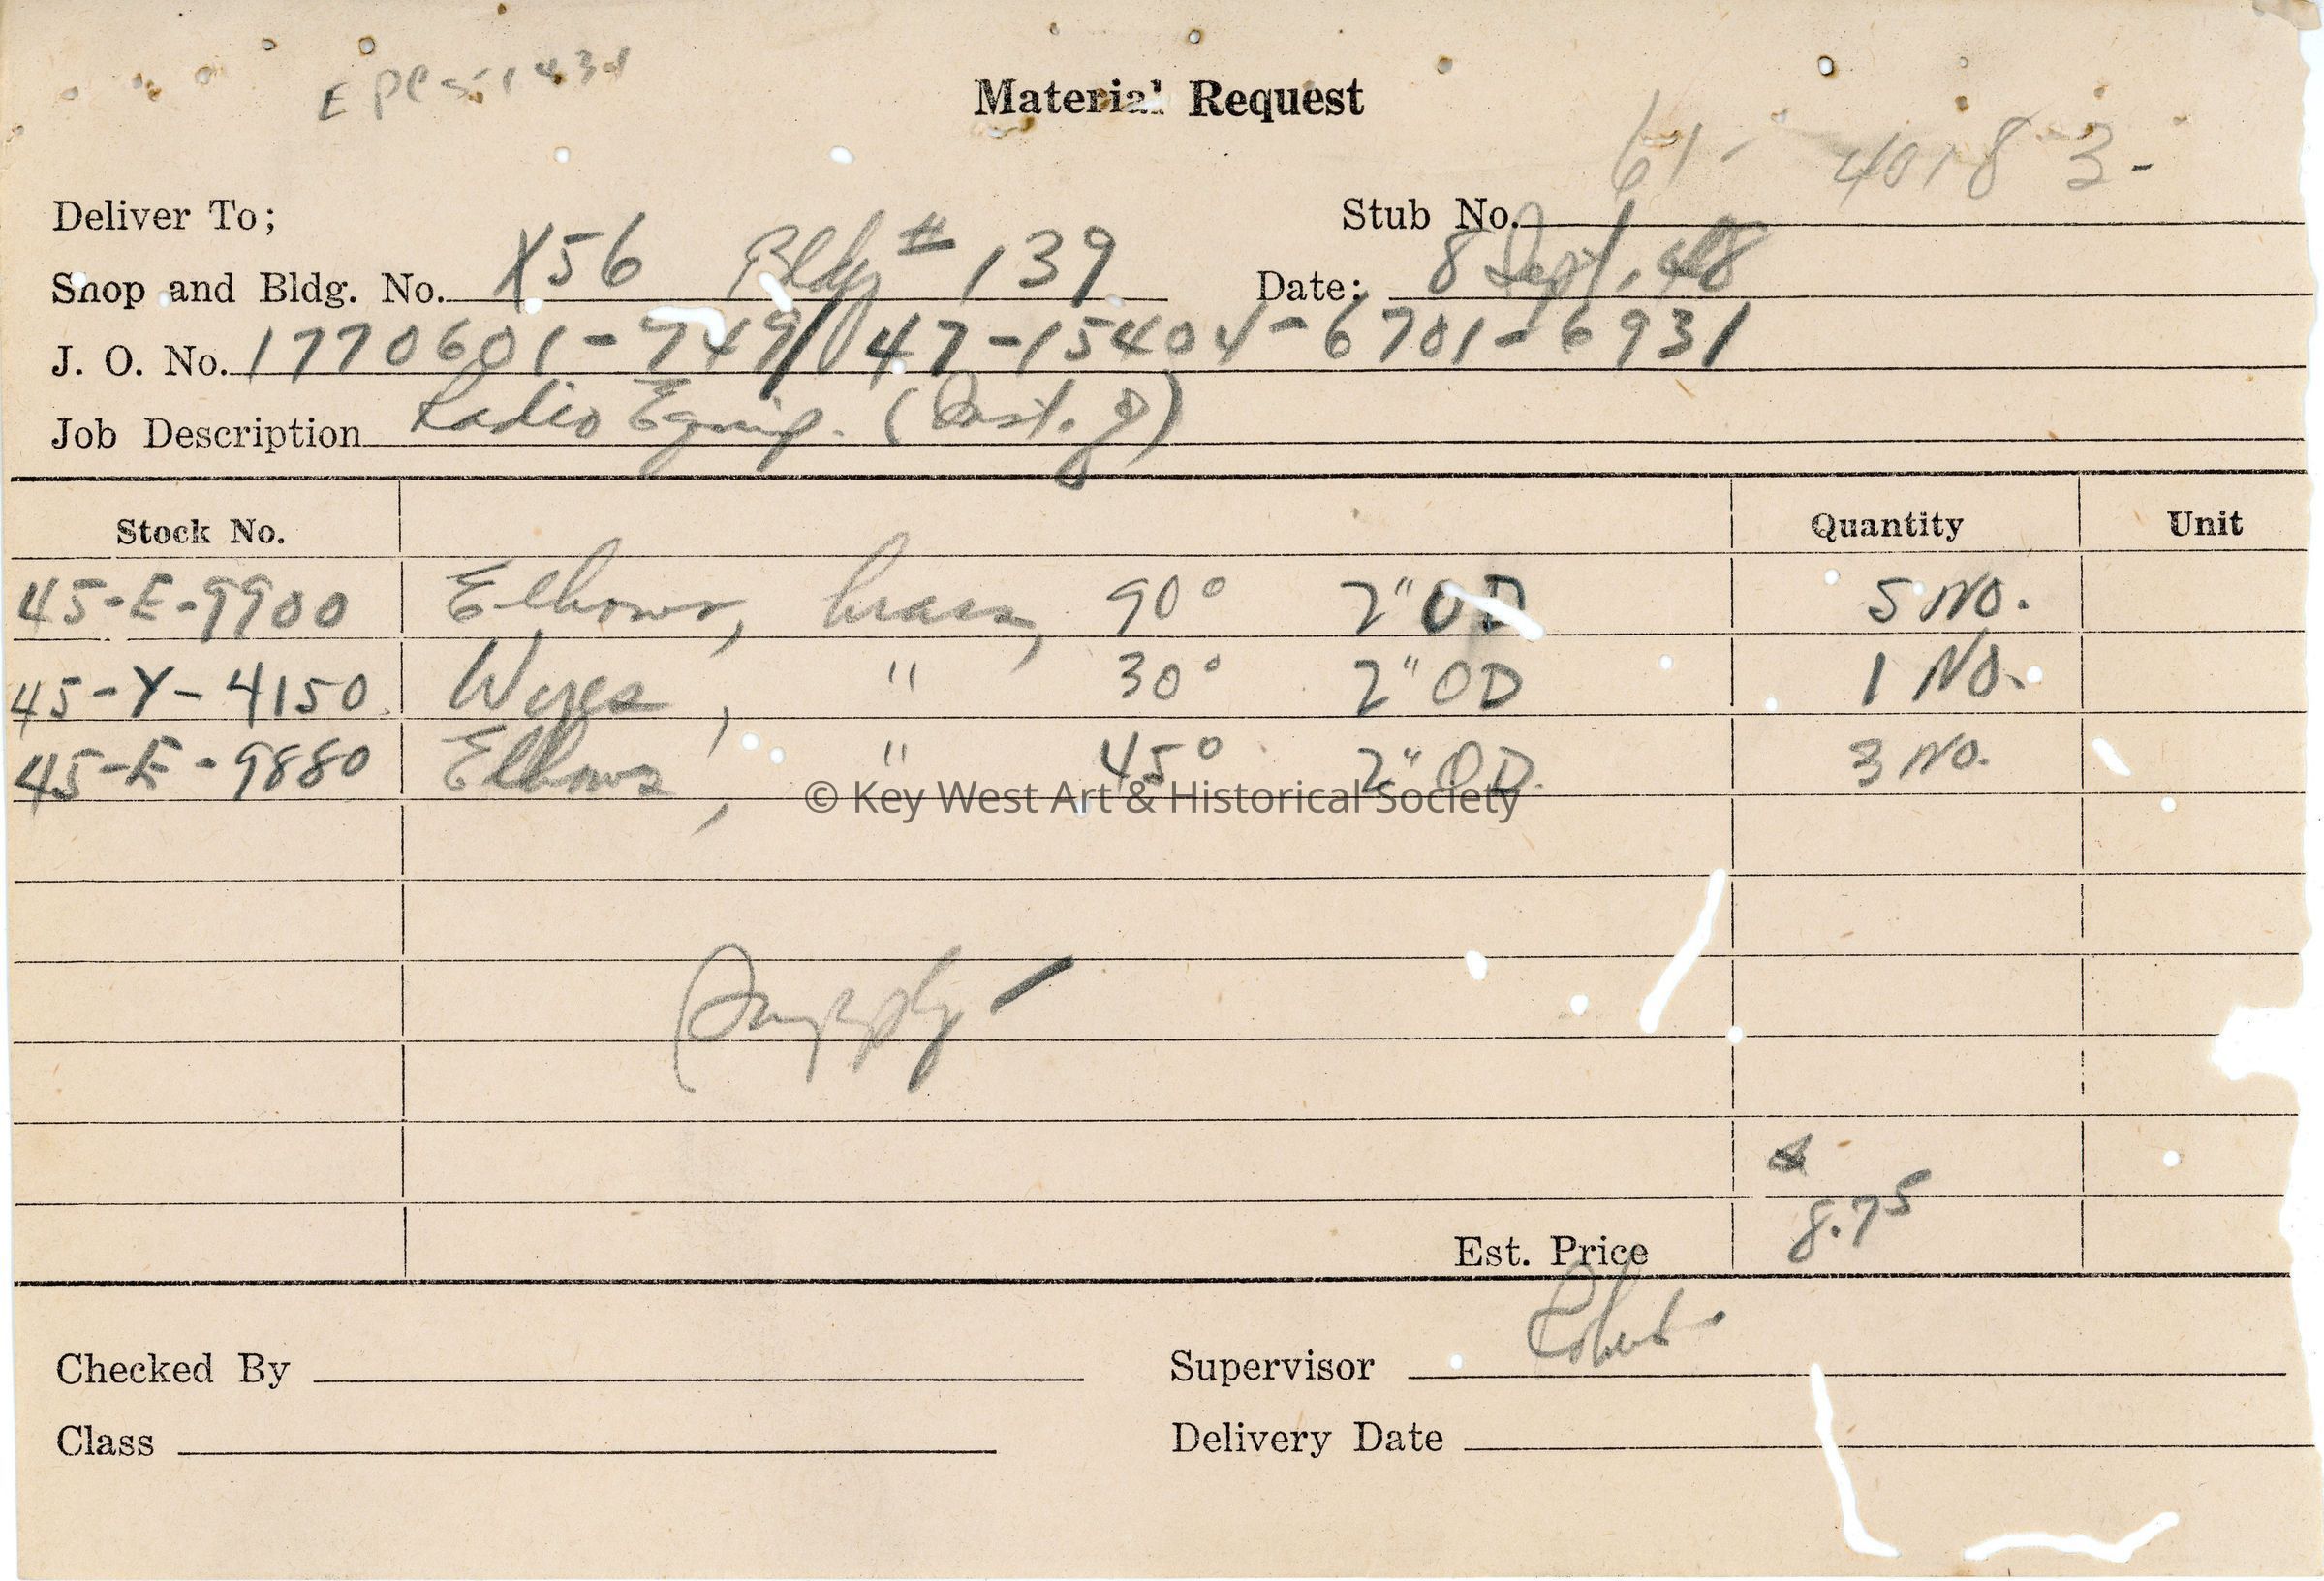 Material Request
61- 4018 3-
Deliver To; Stub No.
Shop and Bldg. No. X56 Bldg # 139 Date: 8 Sept. 48
J. O. No. 1770601-749/ 47-15404-6701-6931
Job Description Radio Equip. (Inst. of)
Stock No. Quantity Unit
45-E-9900 Elbows, brass, 90° 2" OD 5 No.
45-Y-4150 Wyes, " 30° 2" OD 1 No.
45-E-9880 Elbows, " 45° 2" OD. 3 No.
© Key West Art & Historical Society
Supply
8.75
Est. Price
Checked By Supervisor
Class Delivery Date